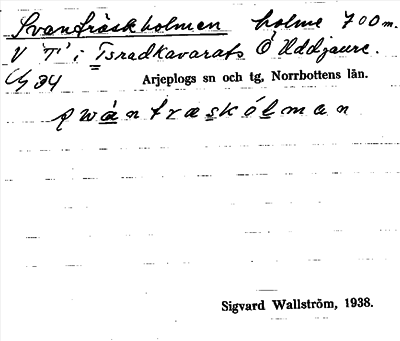 Svanträskholmen holme 700 m.
V "T" i Tsradkavarats Ö Uddjaure.
Uj 34 Arjeplogs sn och tg, Norrbottens län.
swántræskólman
Sigvard Wallström, 1938.